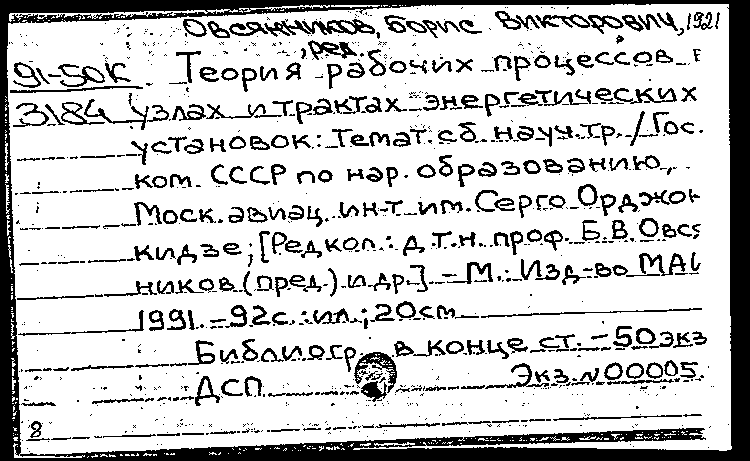 Овсянников, Борис Викторович, 1921
, ред.
91-50К Теория рабочих процессов в
3184 узлах и трактах энергетических
установок: Темат. сб. науч. тр. / Гос.
ком. СССР по нар. образованию,
Моск. авиац. ин-т им. Серго Орджон
кидзе; [Редкол.: д.т.н. проф. Б.В. Овся
ников (пред.) и др.] – М.: Изд-во МАИ
1991. – 92с.: ил.; 20см
Библиогр. в конце ст. – 50 экз
ДСП Экз. N00005.
8